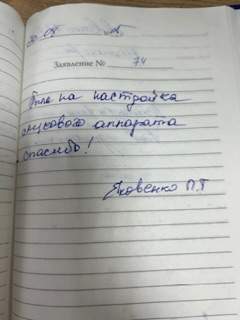 Заявление № 74
Была на настройка
слухового аппарата
Спасибо!
Яковенко П.Т